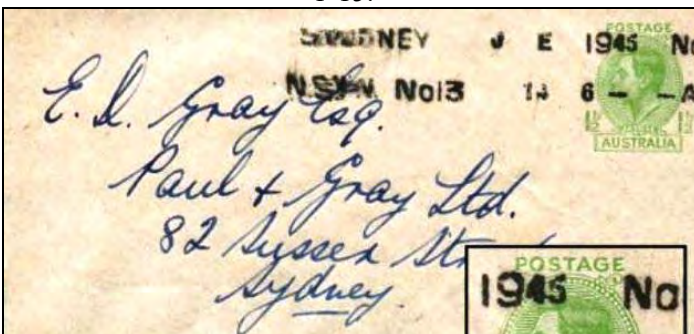 NEY J E 1945 No
N.S.W. No13 13 6 — — A
POSTAGE
1½ 1½
AUSTRALIA
E. D. Gray Esq.
Paul & Gray Ltd.
82 Sussex
Sydney.
POSTAGE
1945 No